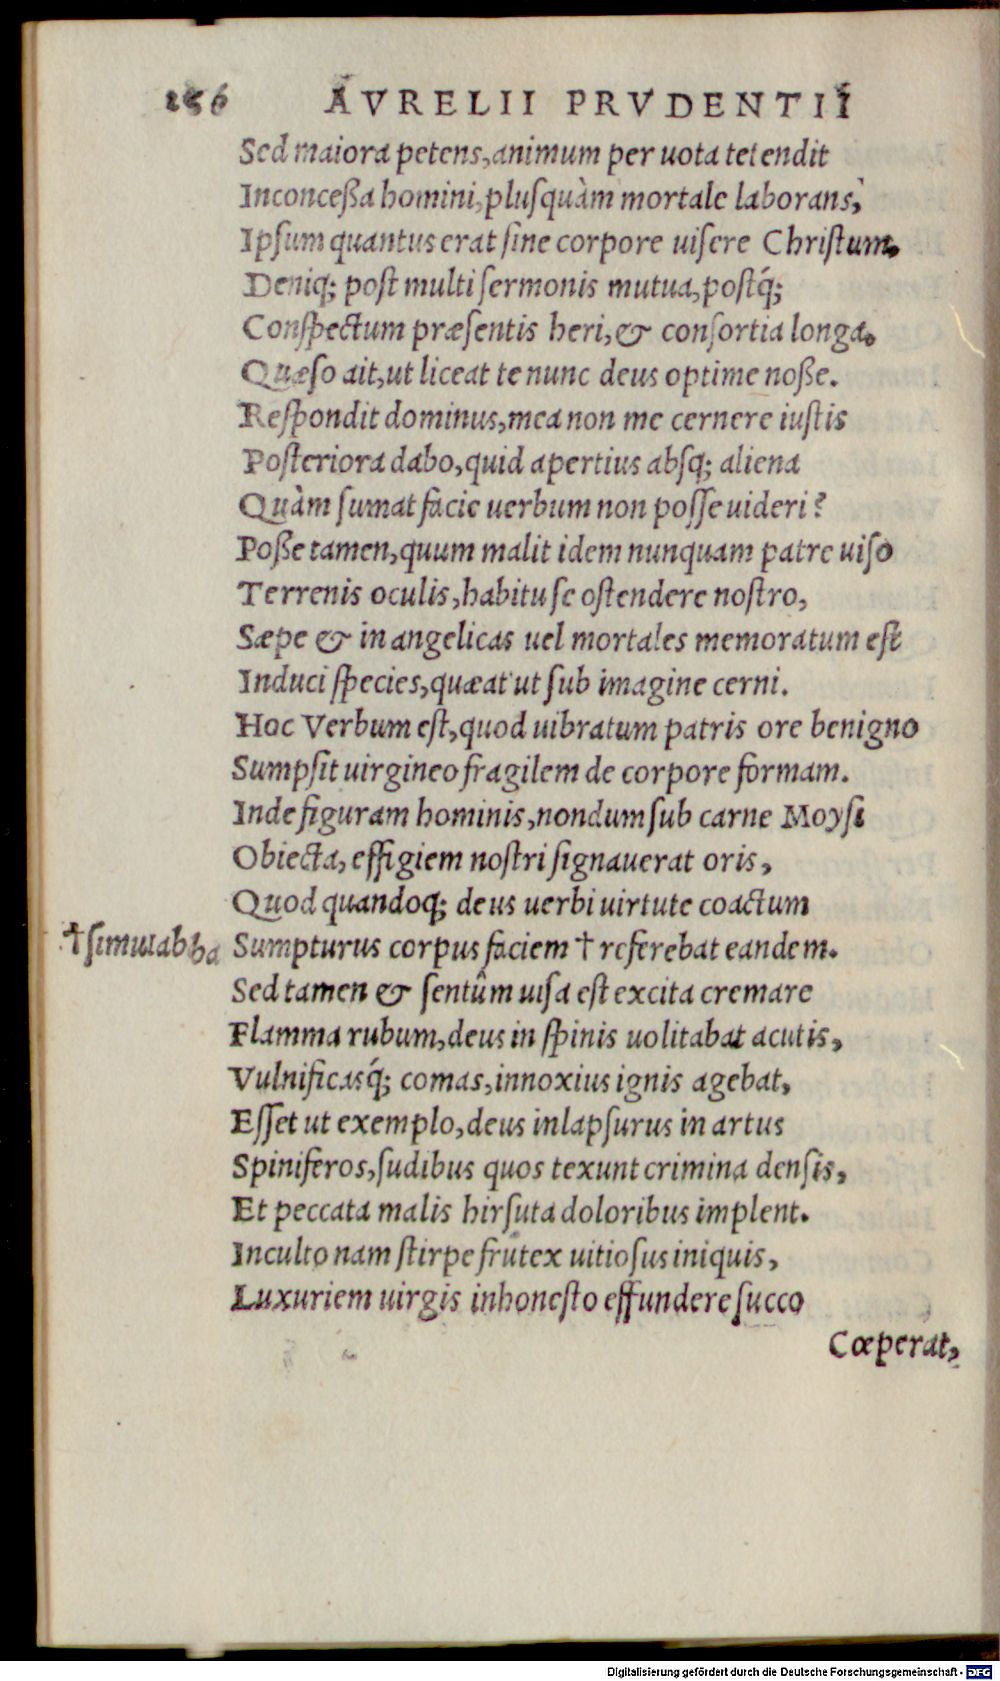 156 AVRELII PRVDENTII
Sed maiora petens, animum per uota tetendit
Inconceßa homini, pluſquàm mortale laborans,
Ipſum quantus erat ſine corpore uiſere Chriſtum.
Deniq; poſt multi ſermonis mutua, poſtq́;
Conſpectum præſentis heri, & conſortia longa.
Quæſo ait, ut liceat te nunc deus optime noße.
Reſpondit dominus, mea non me cernere iuſtis
Poſteriora dabo, quid apertius abſq; aliena
Quàm ſumat facie uerbum non poſſe uideri?
Poße tamen, quum malit idem nunquam patre uiſo
Terrenis oculis, habitu ſe oſtendere noſtro,
Sæpe & in angelicas uel mortales memoratum eſt
Induci ſpecies, quæat ut ſub imagine cerni.
Hoc Verbum eſt, quod uibratum patris ore benigno
Sumpſit uirgineo fragilem de corpore formam.
Inde figuram hominis, nondum ſub carne Moyſi
Obiecta, effigiem noſtri ſignauerat oris,
Quod quandoq; deus uerbi uirtute coactum
†ſimulabba Sumpturus corpus faciem † referebat eandem.
Sed tamen & ſentûm uiſa eſt excita cremare
Flamma rubum, deus in ſpinis uolitabat acutis,
Vulnificasq́; comas, innoxius ignis agebat,
Eſſet ut exemplo, deus inlapſurus in artus
Spiniferos, ſudibus quos texunt crimina denſis,
Et peccata malis hirſuta doloribus implent.
Inculto nam ſtirpe frutex uitioſus iniquis,
Luxuriem uirgis inhoneſto effundere ſucco
Cœperat,
Digitalisierung gefördert durch die Deutsche Forschungsgemeinschaft - DFG